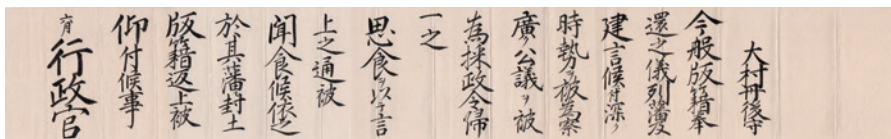 大村丹後守
今般版籍奉
還之儀列藩及
建言候付深ク
時勢ヲ被為察
廣ク公議ヲ被
為採政令帰
一之
思食ヲ以テ言
上之通被
聞食候依之
於其藩封土
版籍返上被
仰付候事
六月
行政官